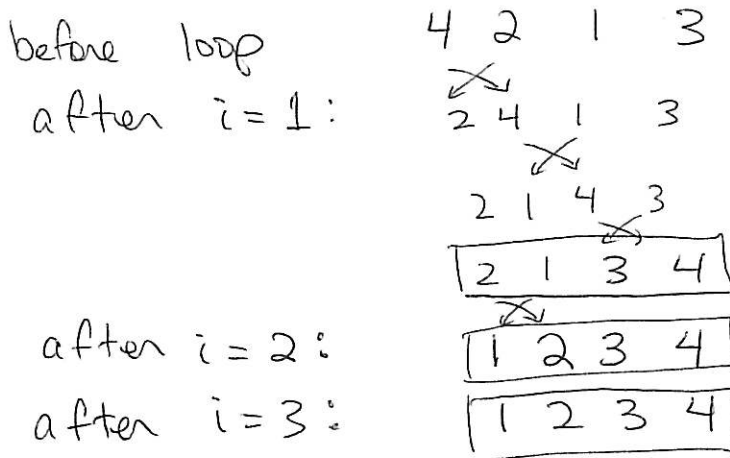 before loop 4 2 1 3
after i = 1: 2 4 1 3
2 1 4 3
2 1 3 4
after i = 2: 1 2 3 4
after i = 3: 1 2 3 4